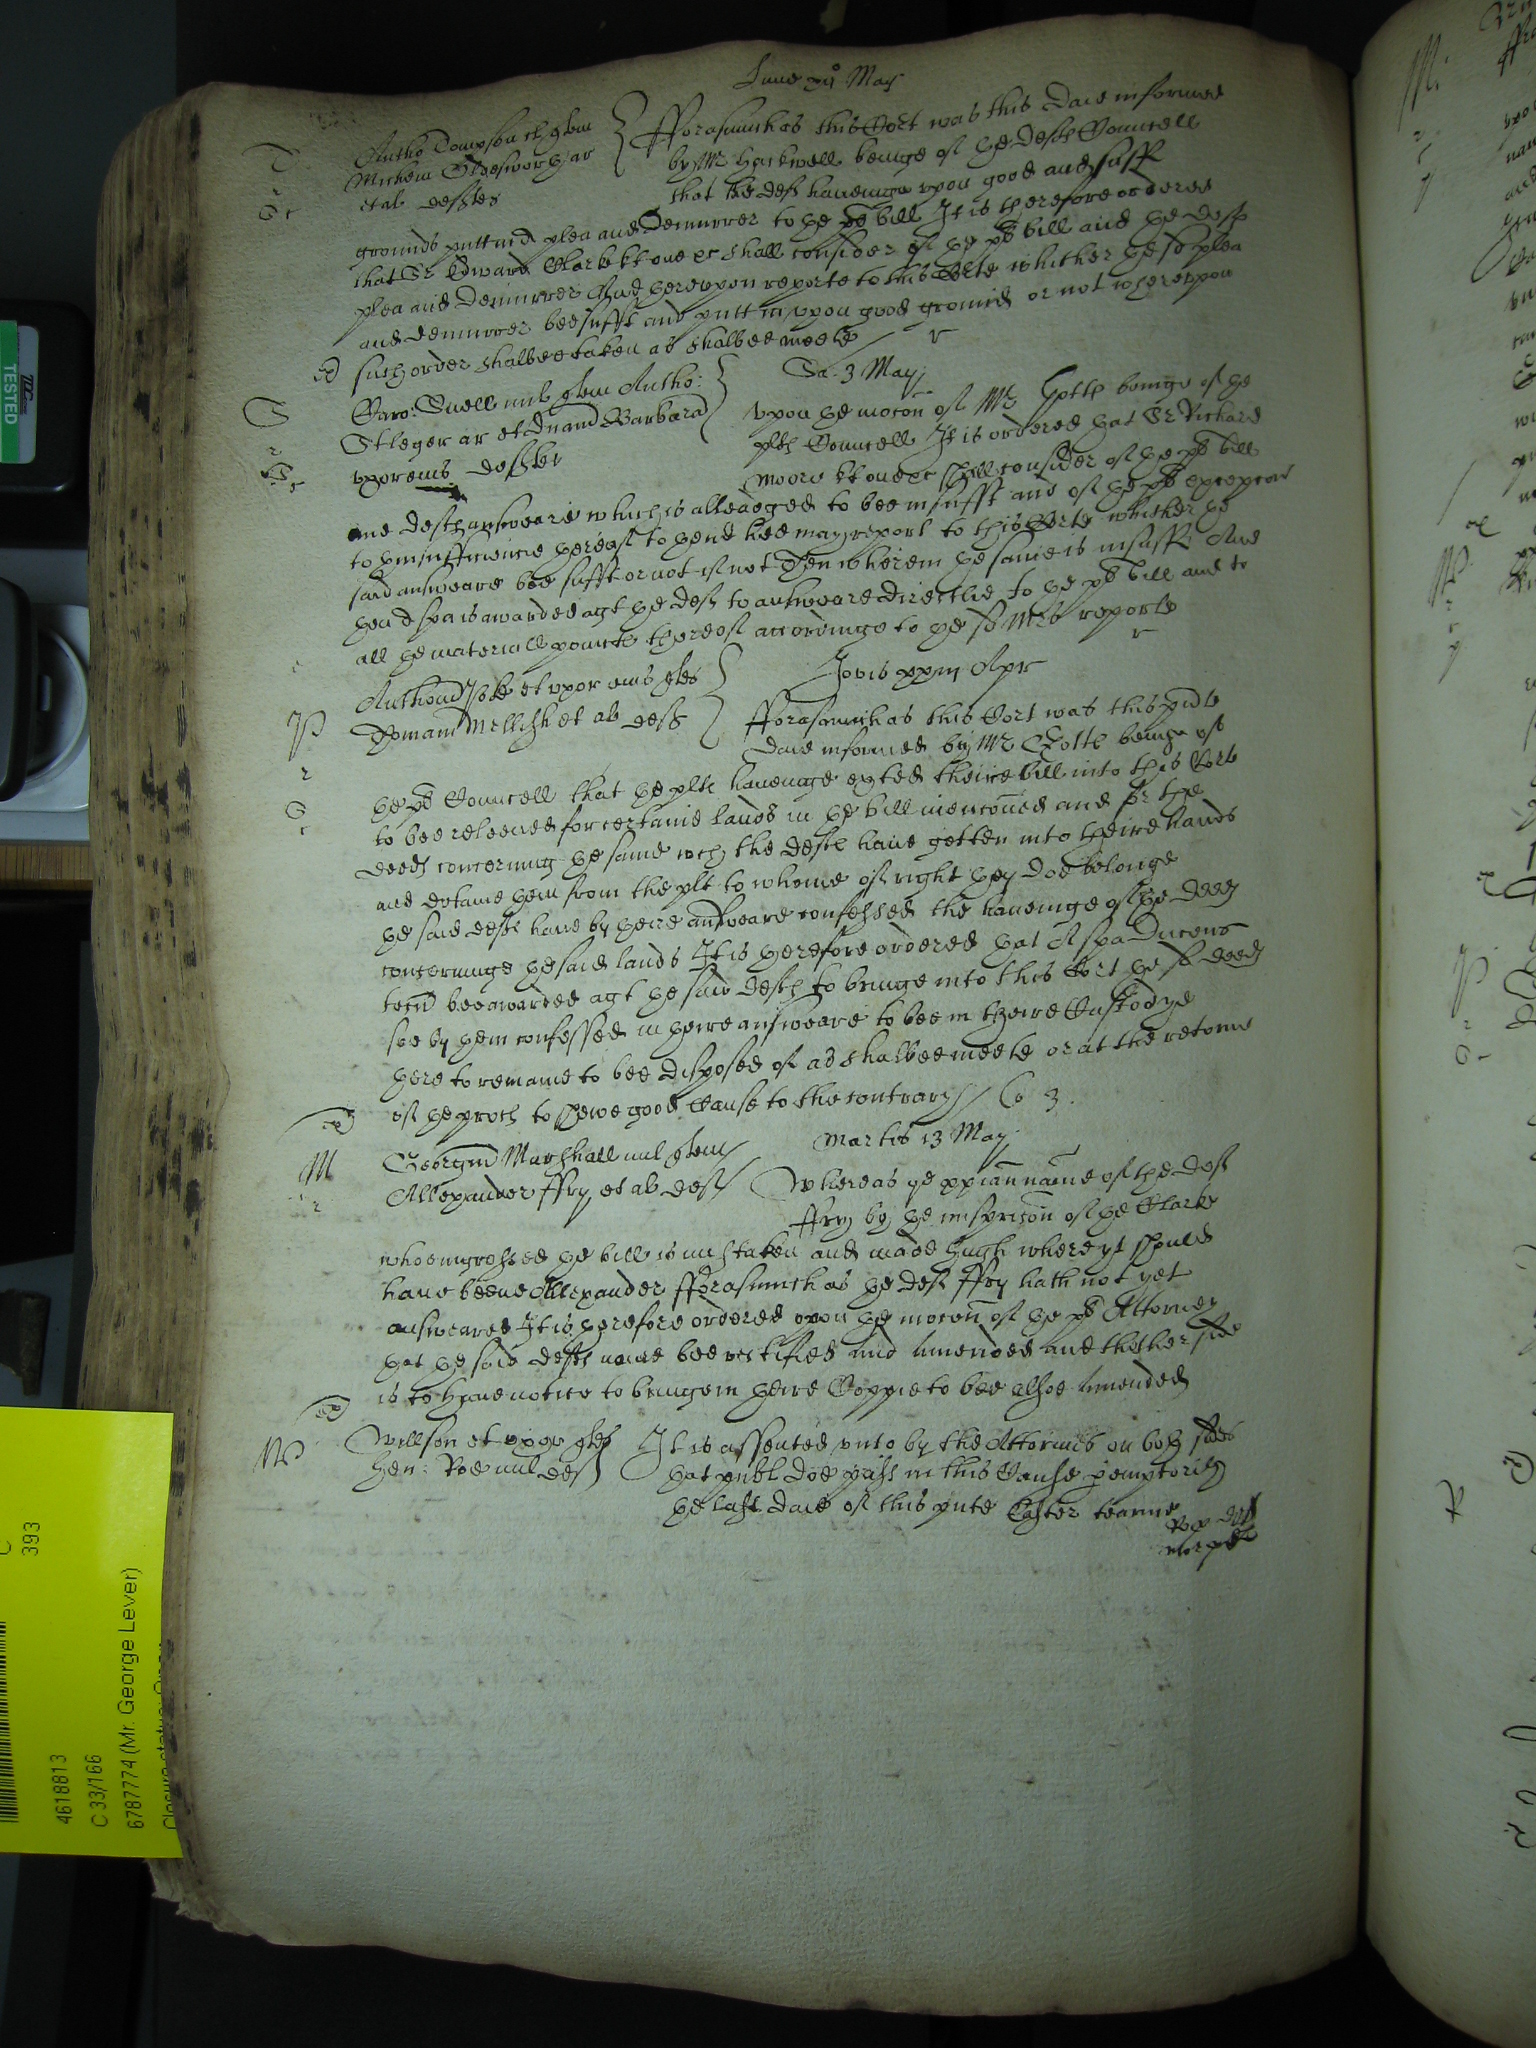 Lune xii May
Antho Tompson cl quer
Michem Oldesworth ar
et al deftes
Fforasmuch as this Cort was this daie informed
by Mr Hackwell beinge of the defts Councell
that the deft haveinge upon good and suff
grounds putt in a plea and demurrer to the plts bill It is therefore ordered
that Sr Edward Clark kt one &c shall consider of the plts bill and the defts
plea and demurrer And thereupon reporte to this Corte whither the sd plea
and demurrer bee sufft and putt in upon good grounds or not whereupon
such order shalbee taken as shalbee meete
Sa. 3 May
Caro: Snell mil quer Antho:
St leger ar et Dnam Barbara
uxor eius defts
upon the mocon of Mr Gotte beinge of the
plts Councell It is ordered that Sr Richard
Moore kt one &c shall consider of the plts bill
and defts answeare which is alleadged to bee insufft and of the plts excepcons
to the insufficiencie thereof to thend hee may report to this Corte whither the
said answeare bee sufft or not if not then wherein the same is insufft And
then a spa is awarded agt the deft to answeare directlie to the plts bill and to
all the materiall points thereof accordinge to the sd Mrs reporte
Jovis xxiii Apr
et uxor eius ples
Mellish et al defts
Fforasmuch as this Cort was this pnte
daie informed by Mr beinge of
the plts Councell that the plts haveinge exhted theire bill into this Corte
to bee releeved for certaine lands in the bill mencoued and for the
deeds concerning the same wch the defts have gotten into theire hands
and detaine them from the plt to whome of right they doe belonge
the said defts have by theire answeare confessed the haveinge of the deeds
concerninge the said lands It is therefore ordered that A spa Ducens
tecu bee awarded agt the said defts to bringe into this Cort the sd deeds
soe by them confessed in theire answeare to bee in theire Custodye
there to remaine to bee disposed of as shalbee meete or at the retorne
of the proces to shewe good cause to the contrary
Martis 13 May
Georgin Marshall mil quer
Allexander Ffry et al defts
Whereas the xpian name of the deft
Ffry by the misprision of the Clarke
who ingrossed the bill is mistaken and made Hugh where yt should
have beene Allexander Fforasmuch as the deft Ffry hath not yet
answeared It is therefore ordered upon the mocon of the plts Attorney
that the said defts name bee rectified and amended and thother side
is to have notice to bringe in theire Coppie to bee alsoe amended
Willson et uxor ples
Hen: Roe mil deft
It is assented unto by the Attornies on both sides
that publ doe passe in this Cause peremptorily
the last daie of this pnte Easter tearme
4618813
C 33/166
6787774 (Mr. George Lever)
C
393
TESTED